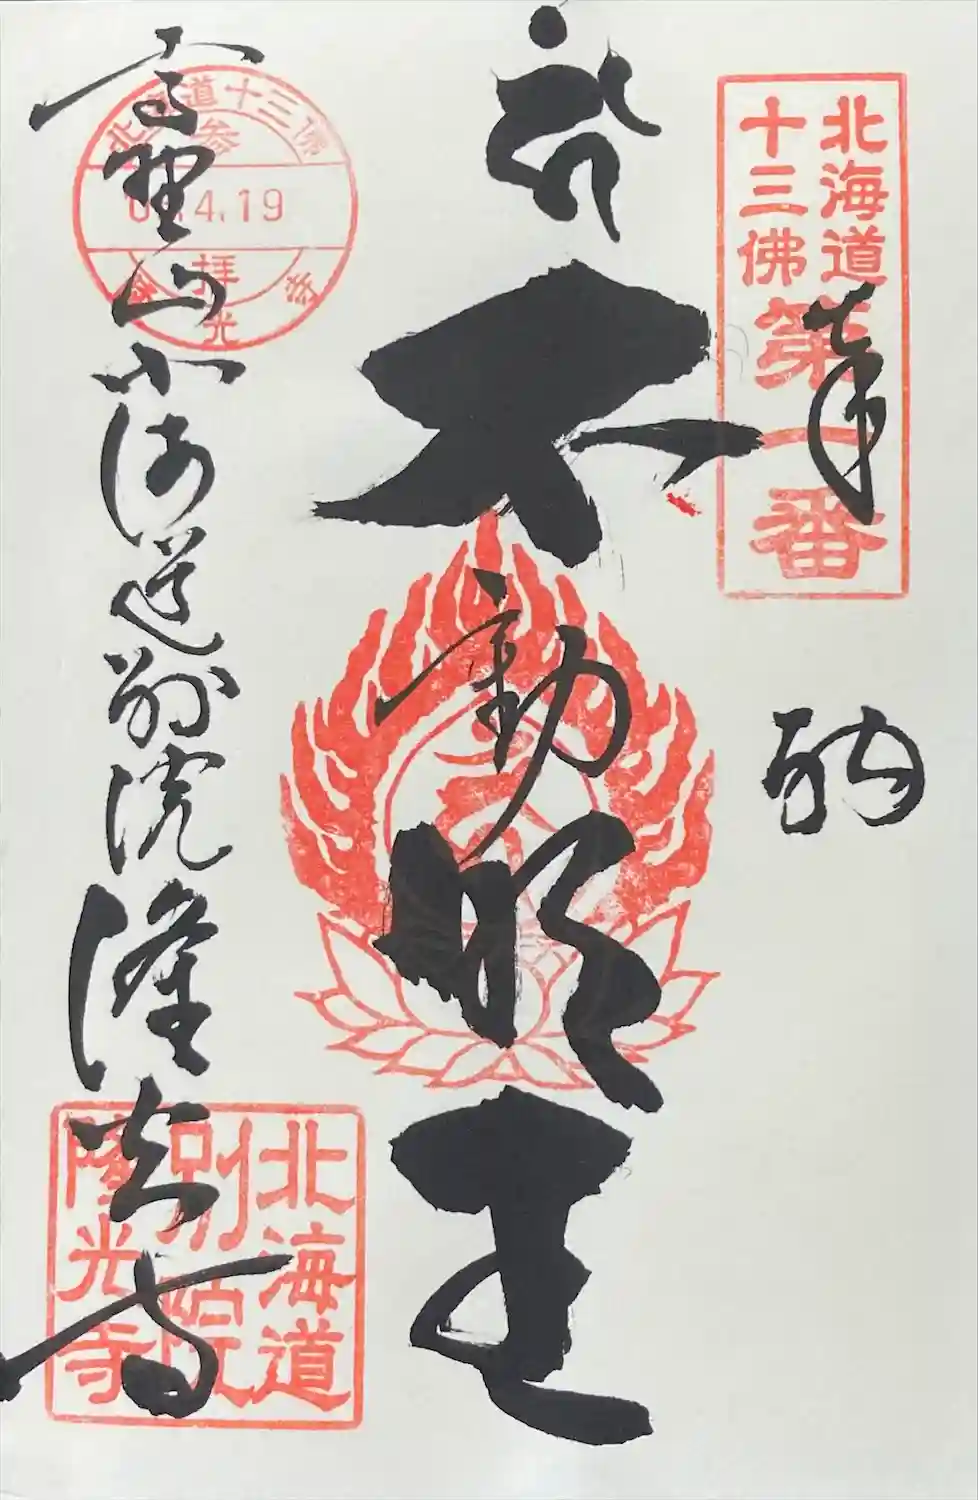 北海道
十三佛
第一番
奉納
不動明王
北海道十三佛
参
4.19
拝
隆光寺
高野山北海道別院隆光寺
北海道
別院
隆光寺